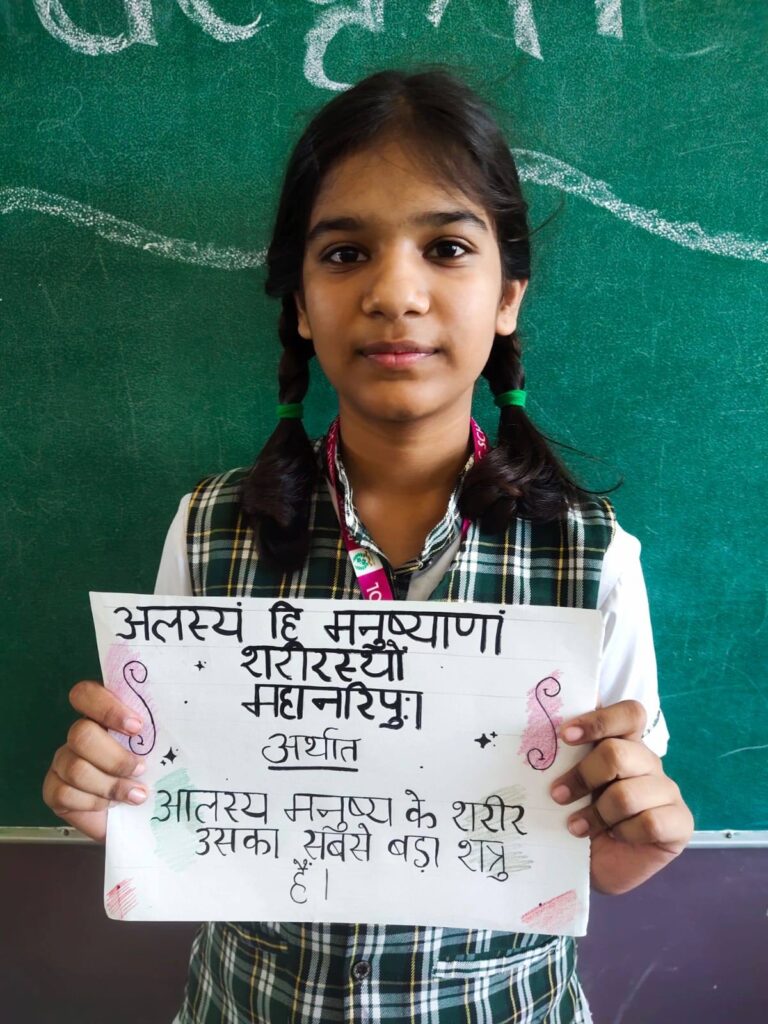 अलस्यं हि मनुष्याणां
शरीरस्यो
महानरिपुः।
अर्थात
आलस्य मनुष्य के शरीर
उसका सबसे बड़ा शत्रु
हैं।